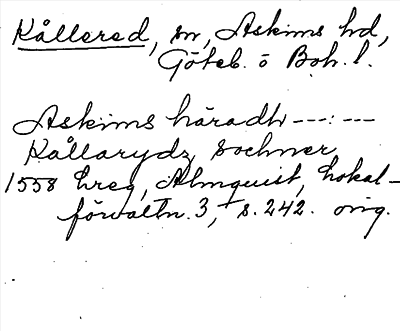 Kållered, sn, Askims hd,
Göteb. o Boh. l.
Askims häradh ---:---
Kållarydz sochner
1558 hreg, Almquist, Lokal-
förvaltn. 3, s. 242. orig.